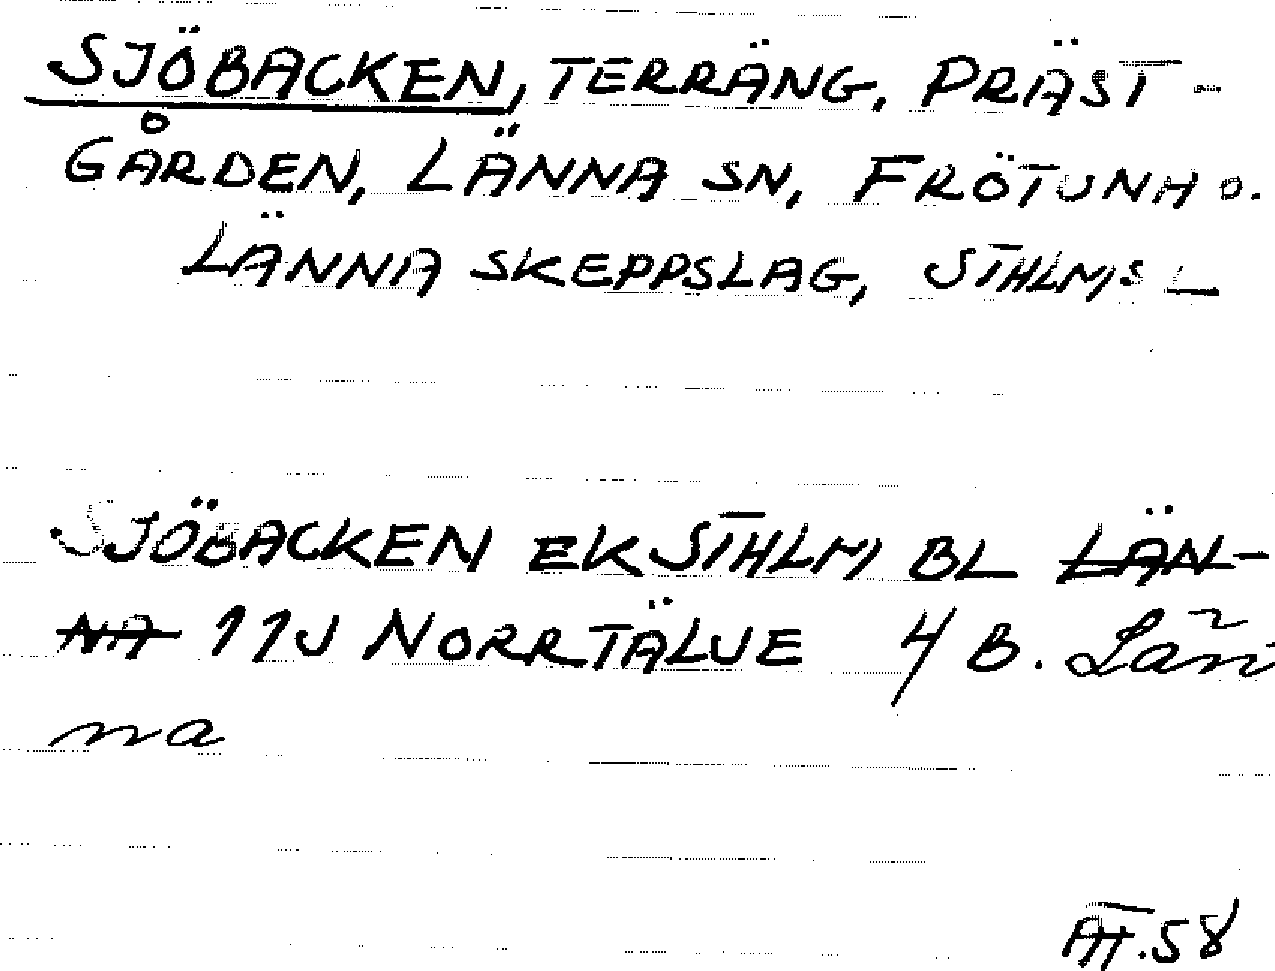 SJÖBACKEN, TERRÄNG, PRÄST-
GÅRDEN, LÄNNA SN, FRÖTUNA O.
LÄNNA SKEPPSLAG, STHLMS L
SJÖBACKEN EK STHLM BL LÄN-
NA 11J NORRTÄLJE 4 B. Län
na
AT.58